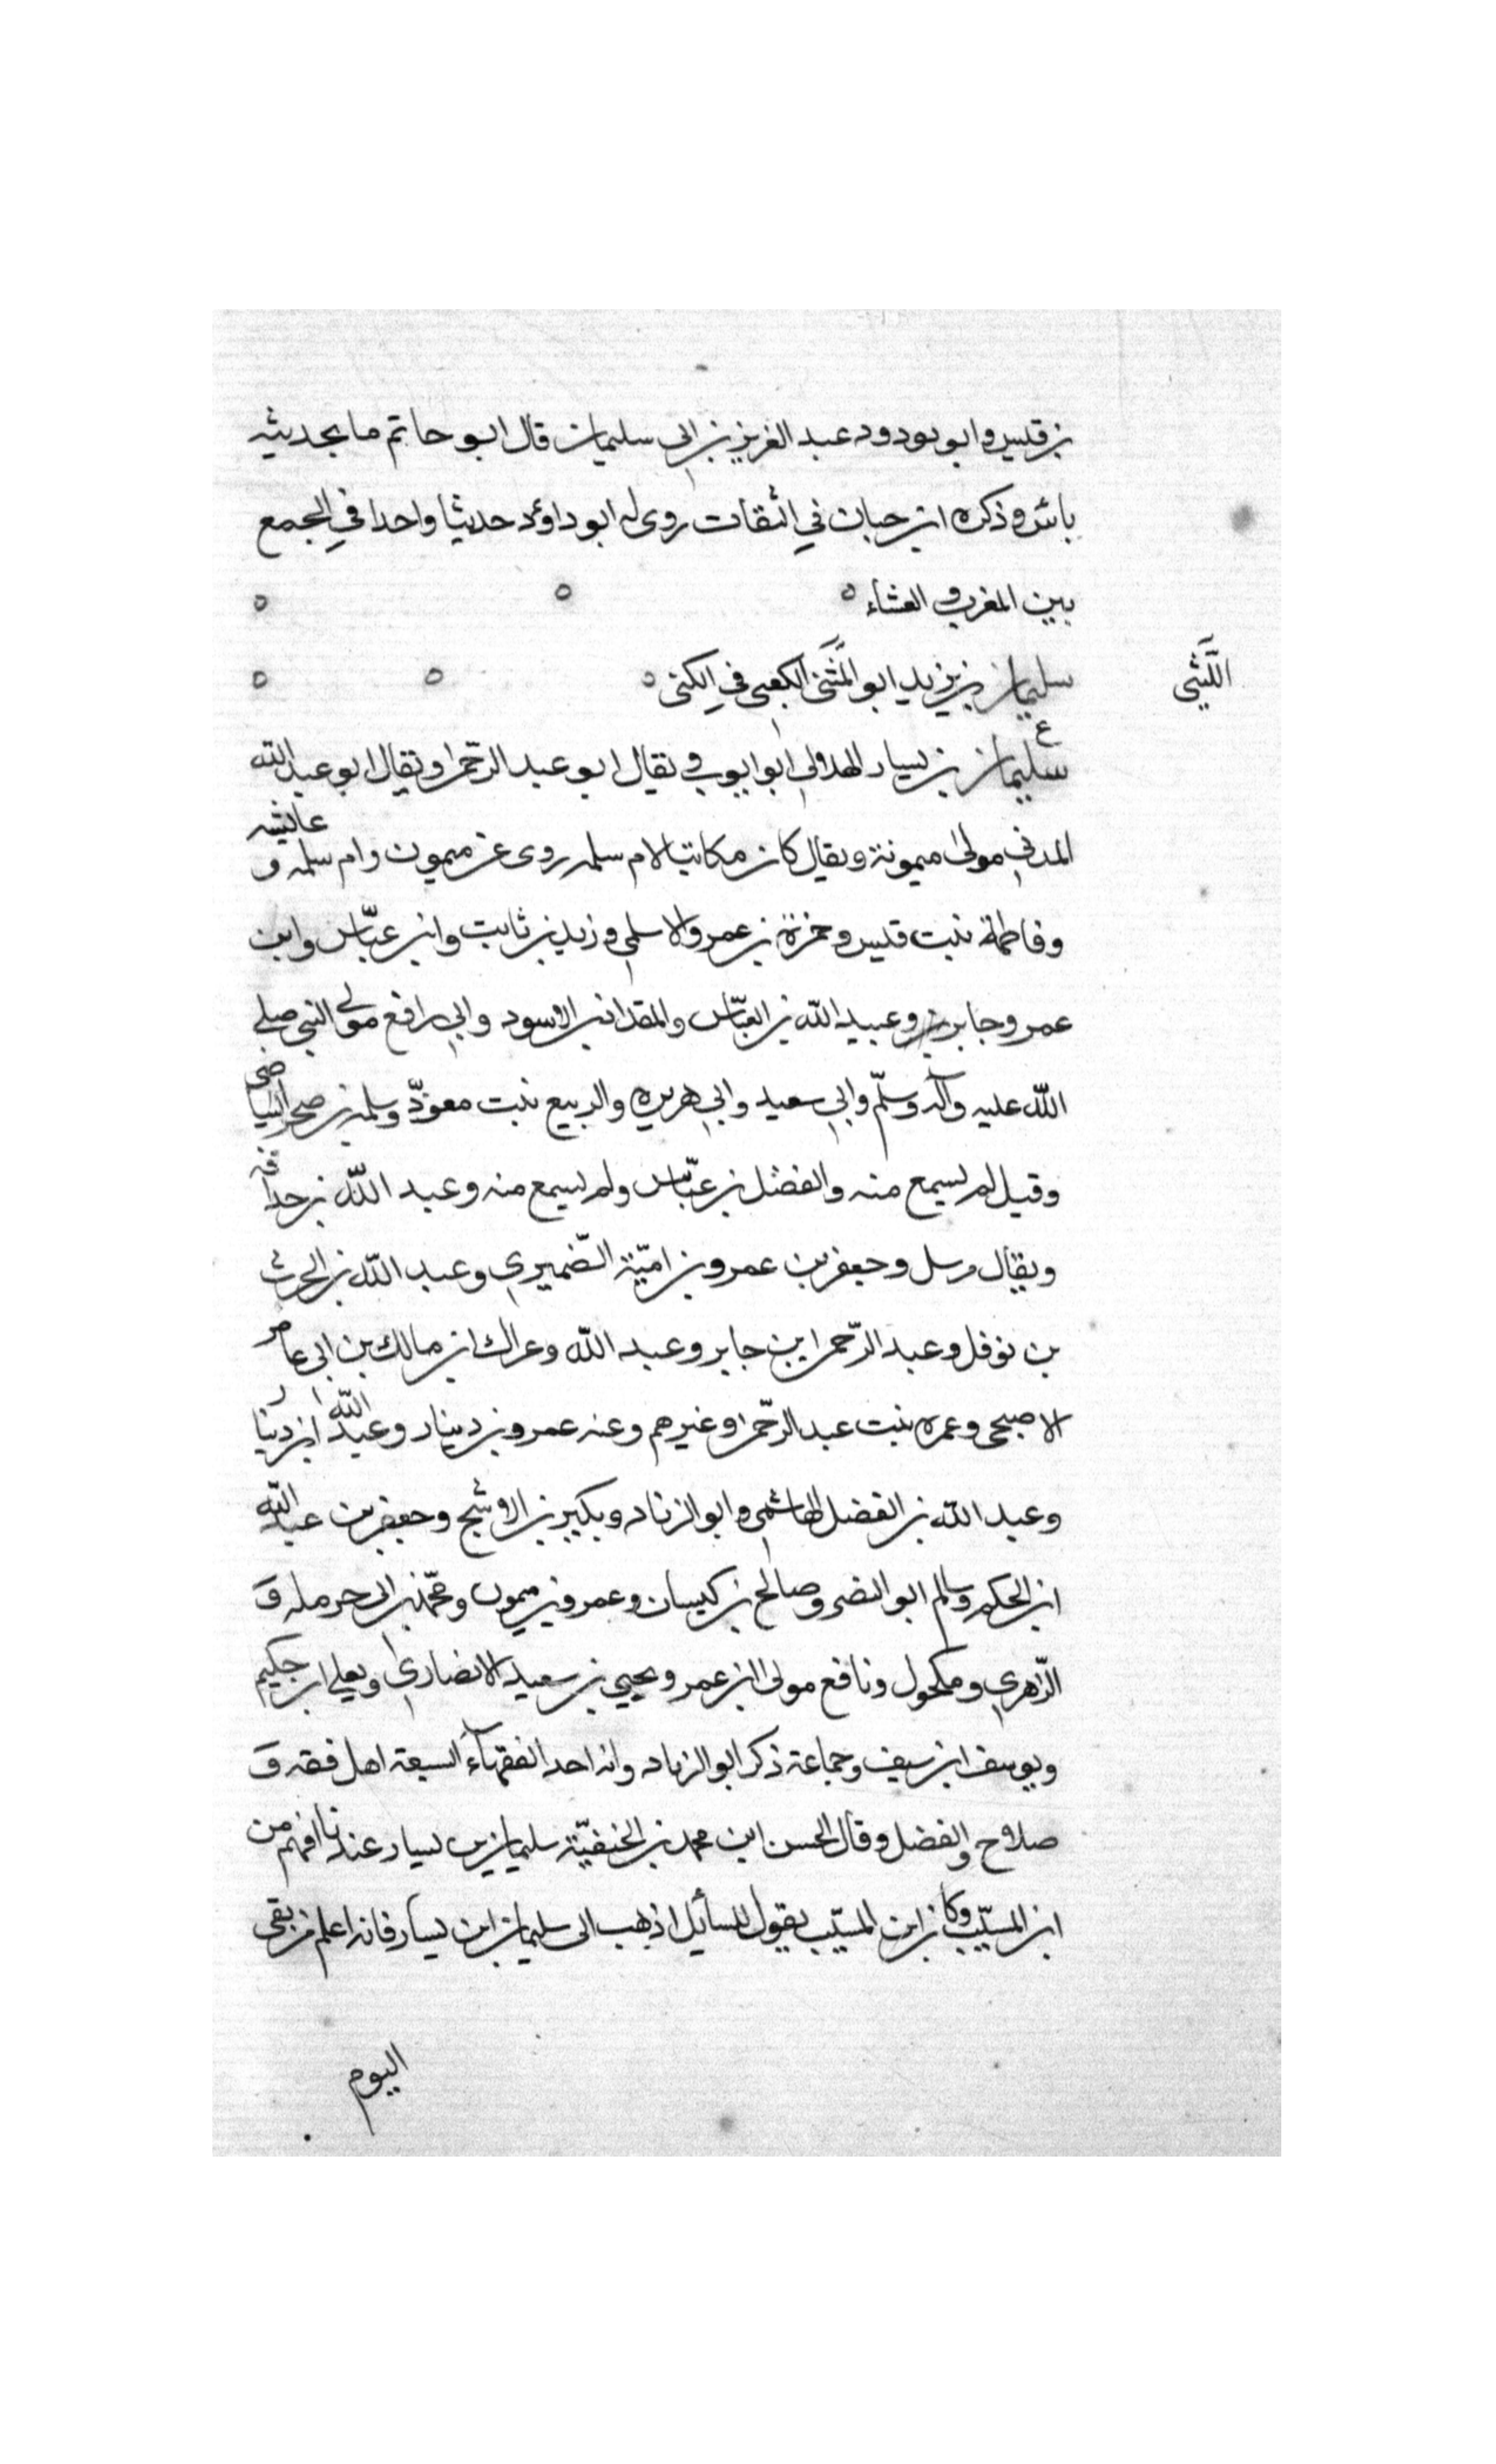 بن قيس وابو بودود عبد العزيز بن ابى سليمان قال ابو حاتم ما بحديثه
باس وذكره ابن حبان في الثقات روى له ابو داوٗد حديثا واحدا في الجمع
بين المغرب و العشاء
الليثى
سليمان بن يزيد ابو المثنى الكعبى في الكنى
ع
سليمان بن يسار الهلالي ابو ايوب و يقال ابو عبد الرحمن ويقال ابو عبد الله
المدني مولى ميمونة ويقال كان مكاتبا لام سلمه روى عن ميمون وام سلمه و عايشه
وفاطمة بنت قيس وحمزة بن عمرو الاسلمي وزيد بن ثابت وابن عباس وابن
عمر وجابر وعبيد الله بن العباس والمقداد بن الاسود وابي رافع مولى النبي صلى
الله عليه وآله وسلم وابي سعيد وابي هريره والربيع بنت معوذ وسلمه بن صخر البياضى
وقيل لم يسمع منه والفضل بن عباس ولم يسمع منه وعبد الله بن حذافه
ويقال مرسل وجعفر بن عمرو بن امية الضميري وعبد الله بن الحرث
بن نوفل وعبد الرحمن ابن جابر وعبد الله وعراك ابن مالك بن ابى عامر
الاصبحى وعمره بنت عبد الرحمن وغيرهم وعنه عمرو بن دينار وعبد الله ابن دينار
وعبد الله بن الفضل الهاشمي وابو الزناد وبكير بن الاشج وجعفر بن عبد الله
ابن الحكم وسالم ابو النضر وصالح بن كيسان وعمرو بن ميمون ومحمد بن ابى حرمله و
الزهري ومكحول ونافع مولى ابن عمر ويحيى بن سعيد الانصاري ويعلى ابن حكيم
ويوسف ابن سيف وجماعة ذكر ابو الزناد وانه احد الفقهاء السبعة اهل فقه و
صلاح والفضل وقال الحسن ابن محمد بن الحنفية سليمان بن يسار عندنا افهم من
ابن المسيب وكان ابن المسيب يقول للسائل اذهب الى سليمان ابن يسار فانه اعلم من بقى
اليوم